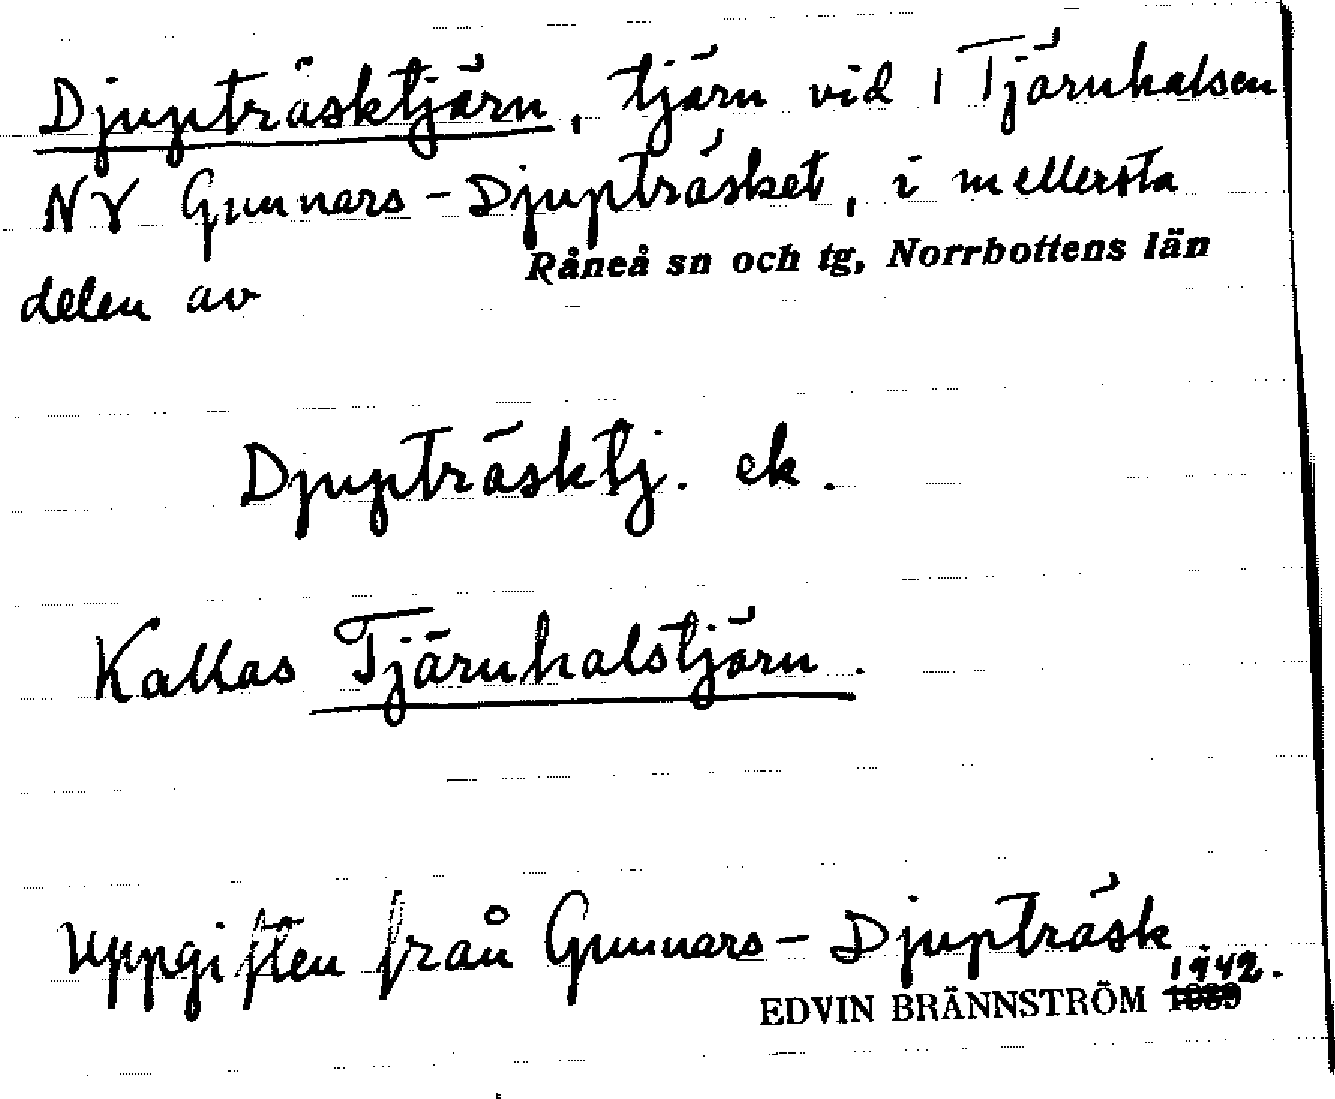 Djupträsktjärn, tjärn vid 1 Tjärnhalsen
NV Gunnars-Djupträsket, i mellersta
delen av Råneå sn och tg, Norrbottens län
Djupträsktj. ek.
Kallas Tjärnhalstjärn.
Uppgiften från Gunnars-Djupträsk
1942.
EDVIN BRÄNNSTRÖM 1939